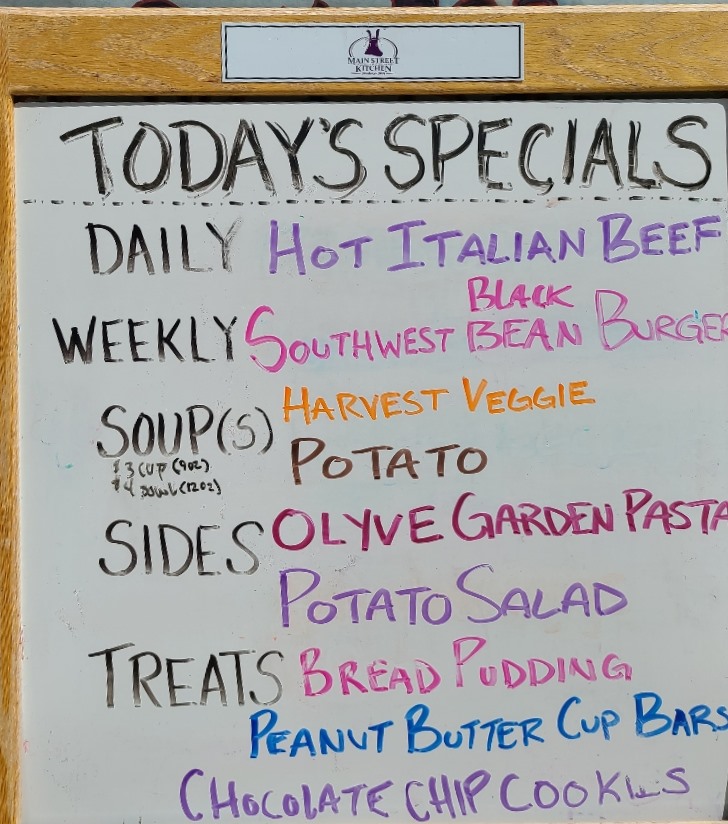 MAIN STREET
KITCHEN
TODAY'S SPECIALS
DAILY HOT ITALIAN BEEF
WEEKLY SOUTHWEST BLACK BEAN BURGER
SOUP(S) HARVEST VEGGIE
$3 CUP (9OZ) POTATO
$4 BOWL (12OZ)
SIDES OLYVE GARDEN PASTA
POTATO SALAD
TREATS BREAD PUDDING
PEANUT BUTTER CUP BARS
CHOCOLATE CHIP COOKIES